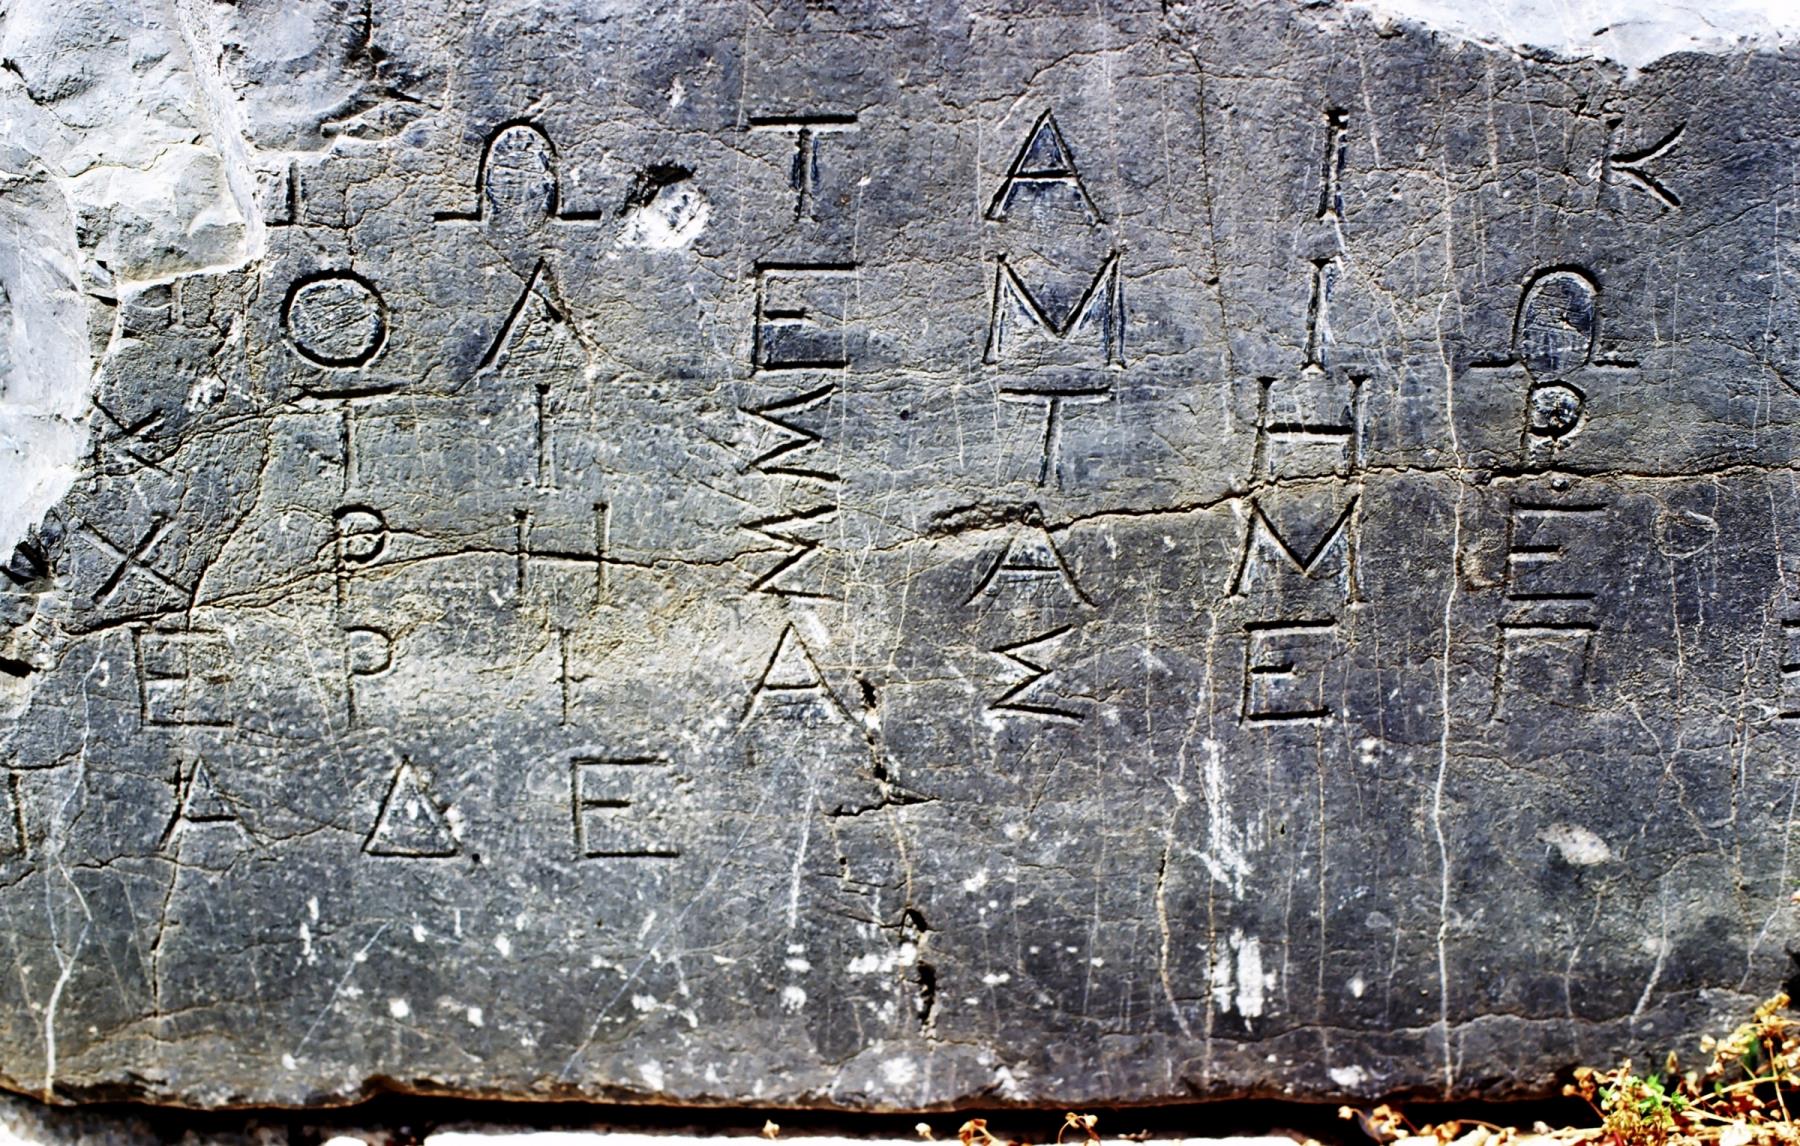 ΩΤΑΙΚ
ΟΛΕΜΙΩ
ΚΤΙΣΤΗΡ
ΧΡΗΣΑΜΕ
ΕΡΙΑΣΕΠΕ
ΤΑΔΕ